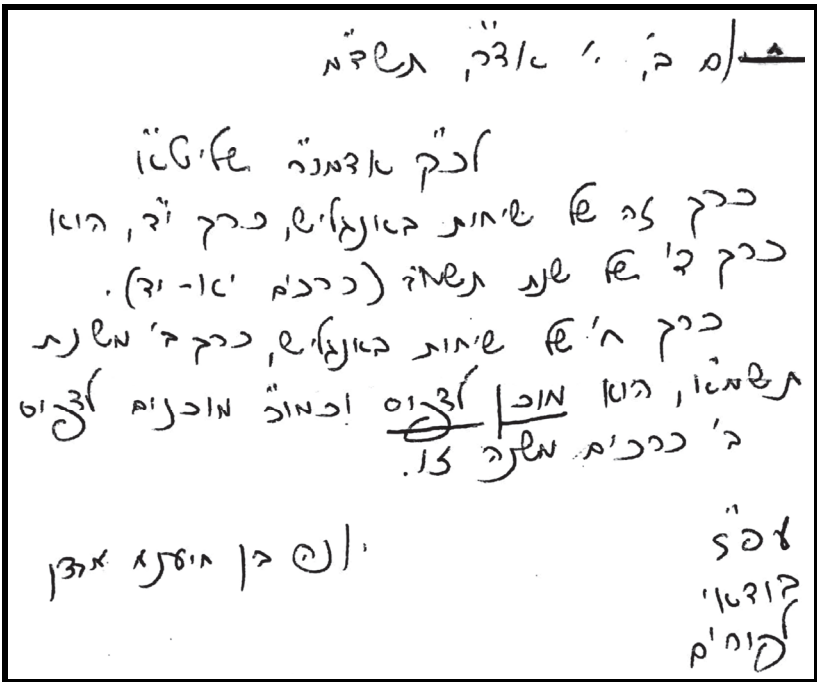 יום ב', י' אד"ר, תשד"מ
לכ"ק אדמו"ר שליט"א
כרך זה של שיחות באנגליש, כרך י"ד, הוא
כרך ד' של שנת תשמ"ג (כרכים יא-יד).
כרך ח' של שיחות באנגליש, כרך ב' משנת
תשמ"א, הוא מוכן לדפוס וכמו"כ מוכנים לדפוס
ב' כרכים משנה זו.
יונה בן חיענא אבצן
עפ"ז
בודאי
לקוחים